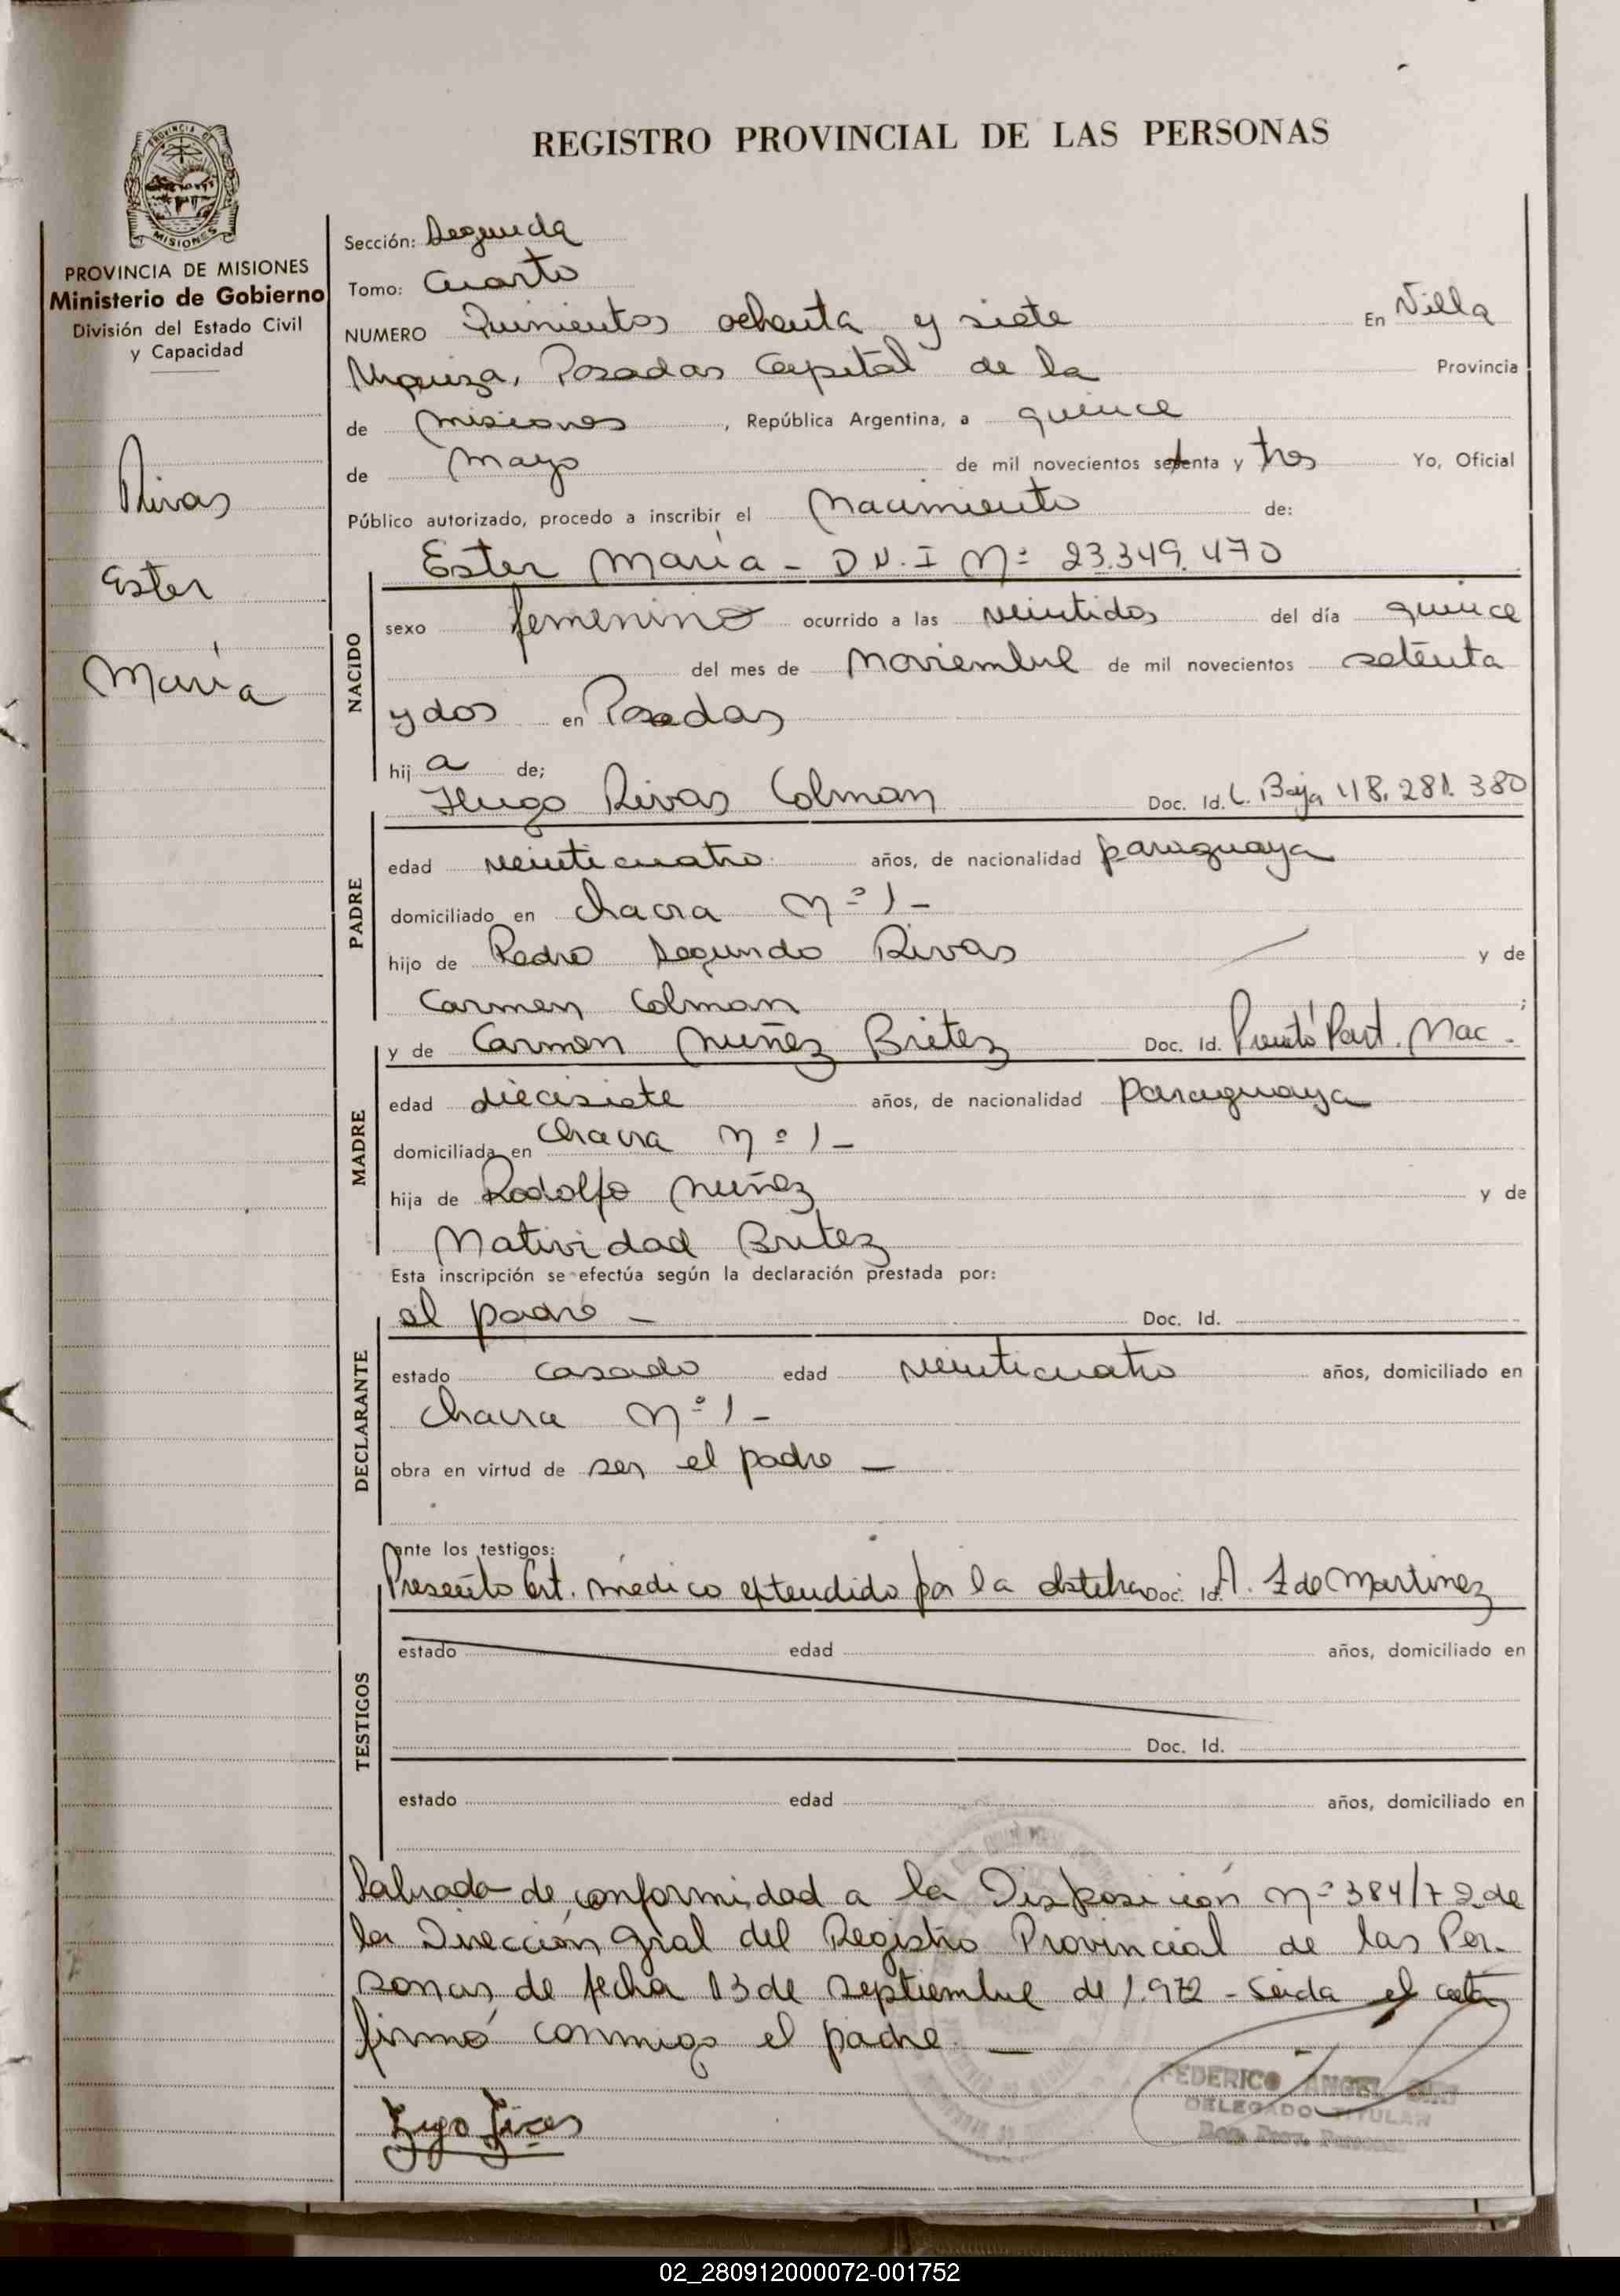 REGISTRO PROVINCIAL DE LAS PERSONAS
PROVINCIA DE MISIONES
PROVINCIA DE MISIONES
Ministerio de Gobierno
División del Estado Civil
y Capacidad
Rivas
Ester
María
Sección: Segunda
Tomo: Cuarto
NUMERO Quinientos ochenta y siete En Villa
Urquiza, Posadas Capital de la Provincia
de Misiones, República Argentina, a quince
de Mayo de mil novecientos setenta y tres Yo, Oficial
Público autorizado, procedo a inscribir el Nacimiento de:
Ester María - D N. I Nº 23.349.470
NACIDO
sexo femenino ocurrido a las veintidos del día quince
del mes de Noviembre de mil novecientos setenta
y dos en Posadas
hij a de;
Hugo Rivas Colman Doc. Id. C. Baja 118.281.380
PADRE
edad veinticuatro años, de nacionalidad paraguaya
domiciliado en chacra Nº 1 -
hijo de Pedro Segundo Rivas y de
Carmen Colman ;
y de Carmen Nuñez Britez Doc. Id. Presentó Part. Nac.
MADRE
edad diecisiete años, de nacionalidad paraguaya
domiciliada en Chacra Nº 1 -
hija de Rodolfo Nuñez y de
Natividad Britez
Esta inscripción se efectúa según la declaración prestada por:
el padre - Doc. Id.
DECLARANTE
estado casado edad veinticuatro años, domiciliado en
chacra Nº 1 -
obra en virtud de ser el padre -
ante los testigos:
Presento Cert. médico extendido por la obstetra Doc. Id. A. Z de Martinez
TESTIGOS
estado edad años, domiciliado en
Doc. Id.
estado edad años, domiciliado en
Labrada de conformidad a la Disposición Nº 384/72 de
la Dirección Gral del Registro Provincial de las Per-
sonas de fecha 13 de septiembre de 1.972 - Leida el acta
firmó conmigo el padre. -
Hugo Rivas
FEDERICO ANGEL
DELEGADO TITULAR
02_280912000072-001752